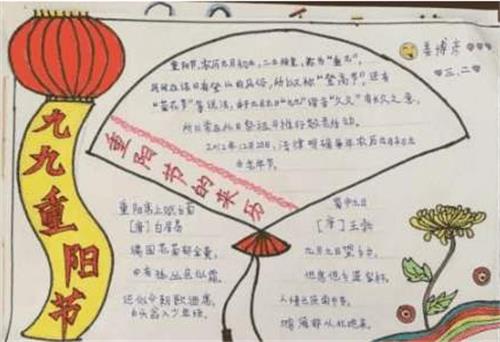 九九重阳节
重阳节的来历
重阳节,农历九月初九,二九相重,称为"重九"。
民间在该日有登高的风俗,所以又称"登高节",还有
"菊花节"等说法,由于九月初九"九九"谐音"久久"有长久之意,
所以常在此日祭祖与推行敬老活动。
2012年12月28日,法律明确每年农历九月初九
为老年节。
姜博
三、二
重阳席上赋白菊
[唐] 白居易
满园花菊郁金黄,
中有孤丛色似霜。
还似今朝歌酒席,
白头翁入少年场。
蜀中九日
[唐] 王勃
九月九日望乡台,
他席他乡送客杯。
人情已厌南中苦,
鸿雁那从北地来。